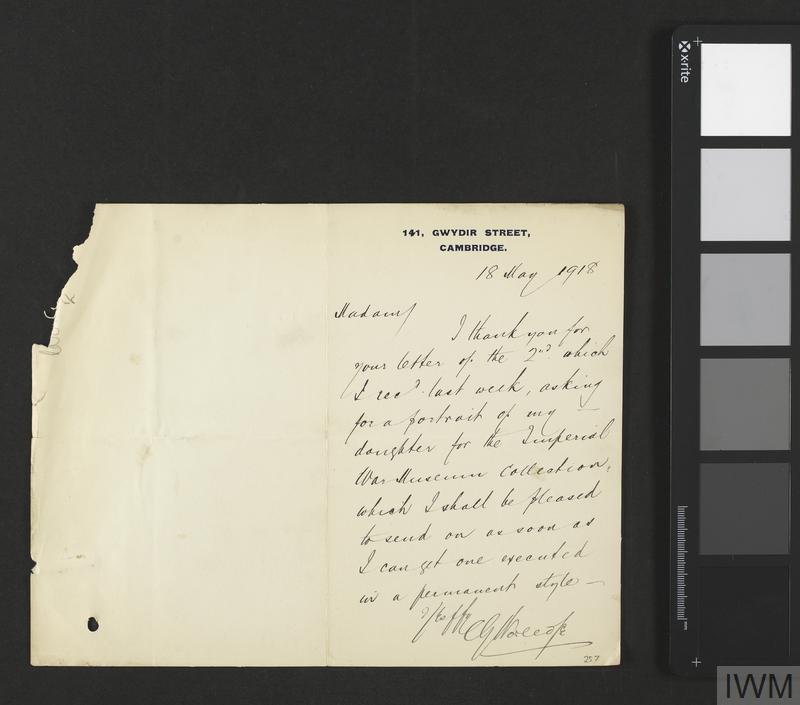 141, GWYDIR STREET,
CAMBRIDGE.
18 May 1918
Madam/
I thank you for
your letter of the 2nd. which
I recd. last week, asking
for a portrait of my —
daughter for the Imperial
War Museum Collection,
which I shall be pleased
to send on as soon as
I can get one executed
in a permanent style —
257
x-rite
mm
IWM